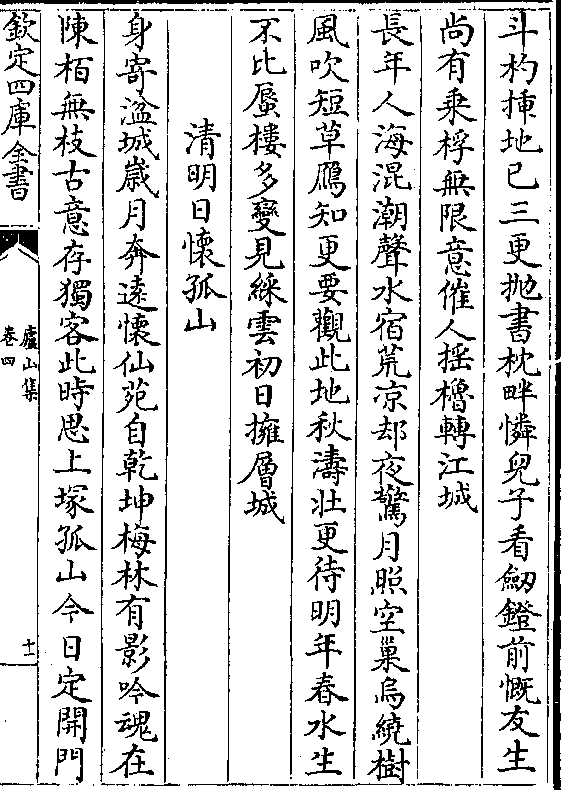 斗杓揷地已三更抛書枕畔憐兒子看劒鐙前慨友生
尚有乘桴無限意催人揺櫓轉江城
長年人海混潮聲水宿荒凉却夜驚月照空巢烏繞樹
風吹短草鴈知更要觀此地秋濤壯更待明年春水生
不比蜃樓多變見綵雲初日擁層城
清明日懷孤山
身寄湓城嵗月奔遠懷仙苑自乾坤梅林有影吟魂在
陳栢無枝古意存獨客此時思上塚孤山今日定開門
欽定四庫全書
廬山集
卷四
十一